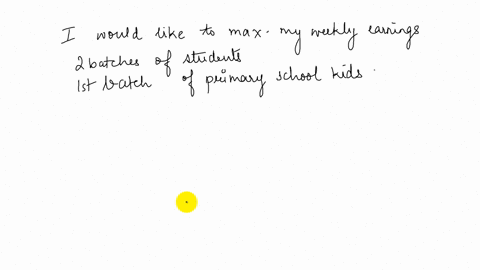 I would like to max. my weekly earnings
2 batches of students
1st batch of primary school kids.